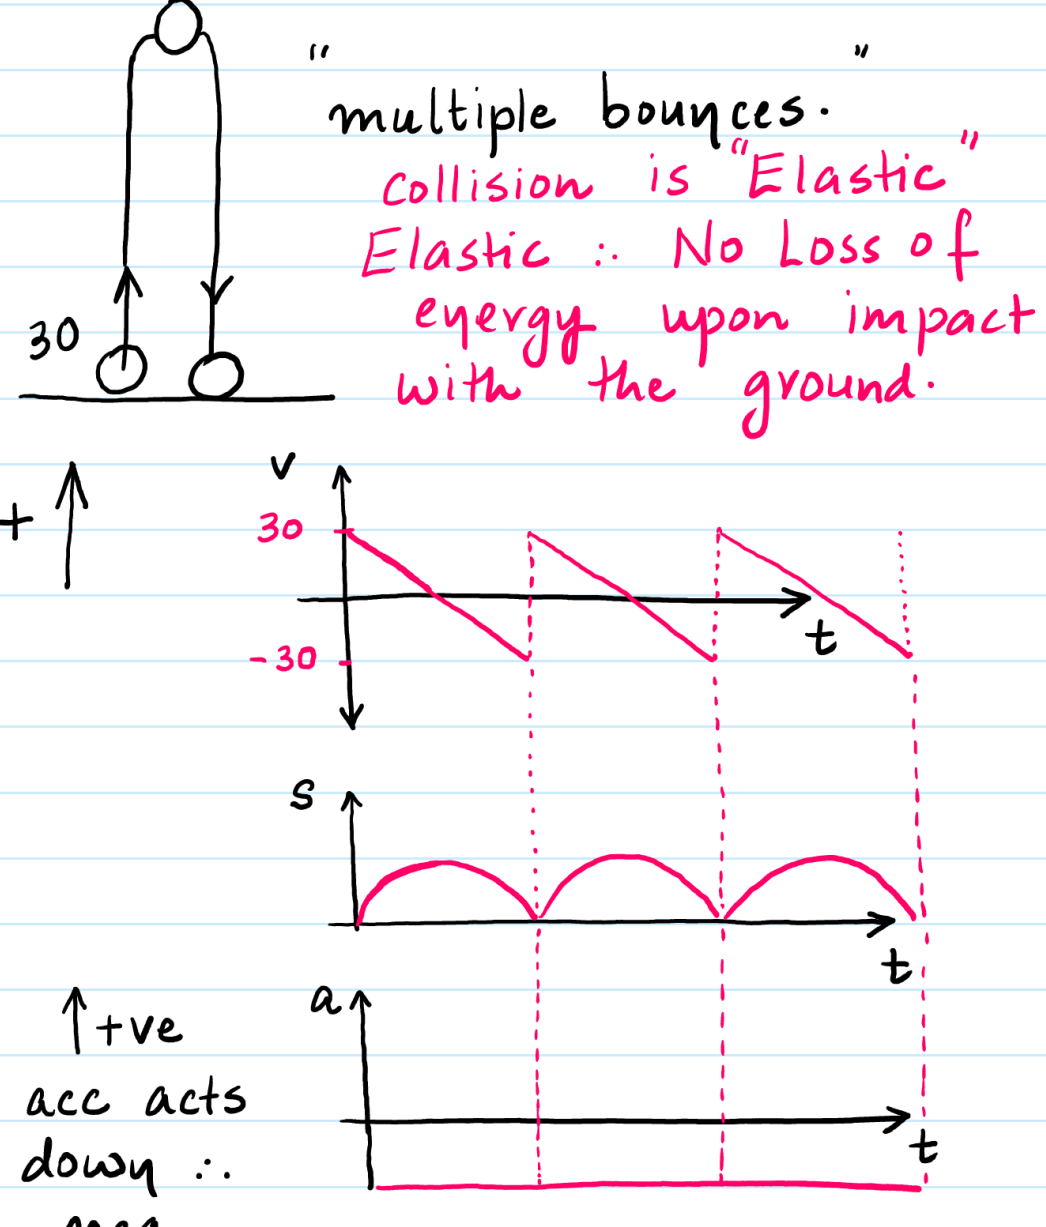 "                    "
multiple bounces.
collision is "Elastic"
Elastic ∴ No Loss of
energy upon impact
with the ground.
30
+
v
30
-30
t
s
t
a
↑ +ve
acc acts
down ∴
t